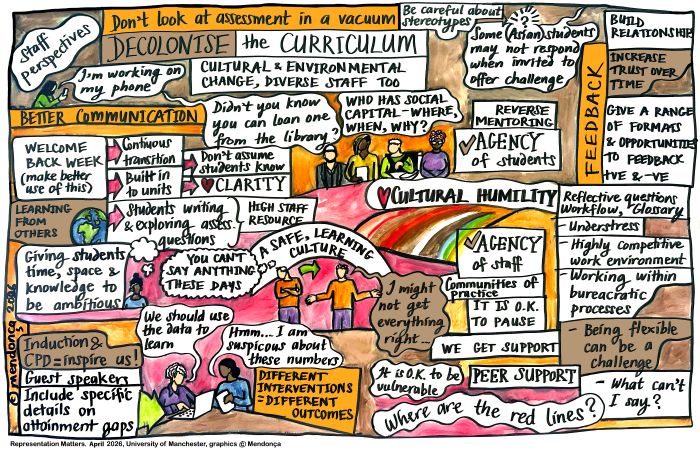 Don't look at assessment in a vacuum
Staff
Perspectives
DECOLONISE the CURRICULUM
CULTURAL & ENVIRONMENTAL
CHANGE, DIVERSE STAFF TOO
Be careful about
stereotypes
?
Some (Asian) students
may not respond
when invited to
offer challenge
FEEDBACK
BUILD
RELATIONSHIP
INCREASE
TRUST OVER
TIME
GIVE A RANGE
OF FORMATS
& OPPORTUNITIES
TO FEEDBACK
+VE & -VE
I'm working on
my phone
BETTER COMMUNICATION
Didn't you know
you can loan one
from the library?
WHO HAS SOCIAL
CAPITAL - WHERE,
WHEN, WHY?
REVERSE
MENTORING
AGENCY
of students
WELCOME
BACK WEEK
(make better
use of this)
Contiuous
transition
Built in
to units
Don't assume
students know
CLARITY
LEARNING
FROM
OTHERS
Students writing
& exploring assess.
questions
HIGH STAFF
RESOURCE
CULTURAL HUMILITY
Reflective questions
Workflow, "Glossary
Understress
- Highly competitive
work environment
- Working within
bureacratic
processes
- Being flexible
can be a
challenge
- What can't
I say?
Giving students
time, space &
knowledge to
be ambitious
YOU CAN'T
SAY ANYTHING
THESE DAYS
A SAFE, LEARNING
CULTURE
I might
not get
everything
right...
AGENCY
of staff
Communities of
practice
IT IS O.K.
TO PAUSE
WE GET SUPPORT
It is O.K. to be
vulnerable
PEER SUPPORT
Where are the red lines?
We should use
the data to
learn
Hmm... I am
suspicious about
these numbers
DIFFERENT
INTERVENTIONS
= DIFFERENT
OUTCOMES
Induction &
CPD = inspire us!
Guest speakers
Include specific
details on
attainment gaps
Representation Matters. April 2026, University of Manchester, graphics © Mendonça